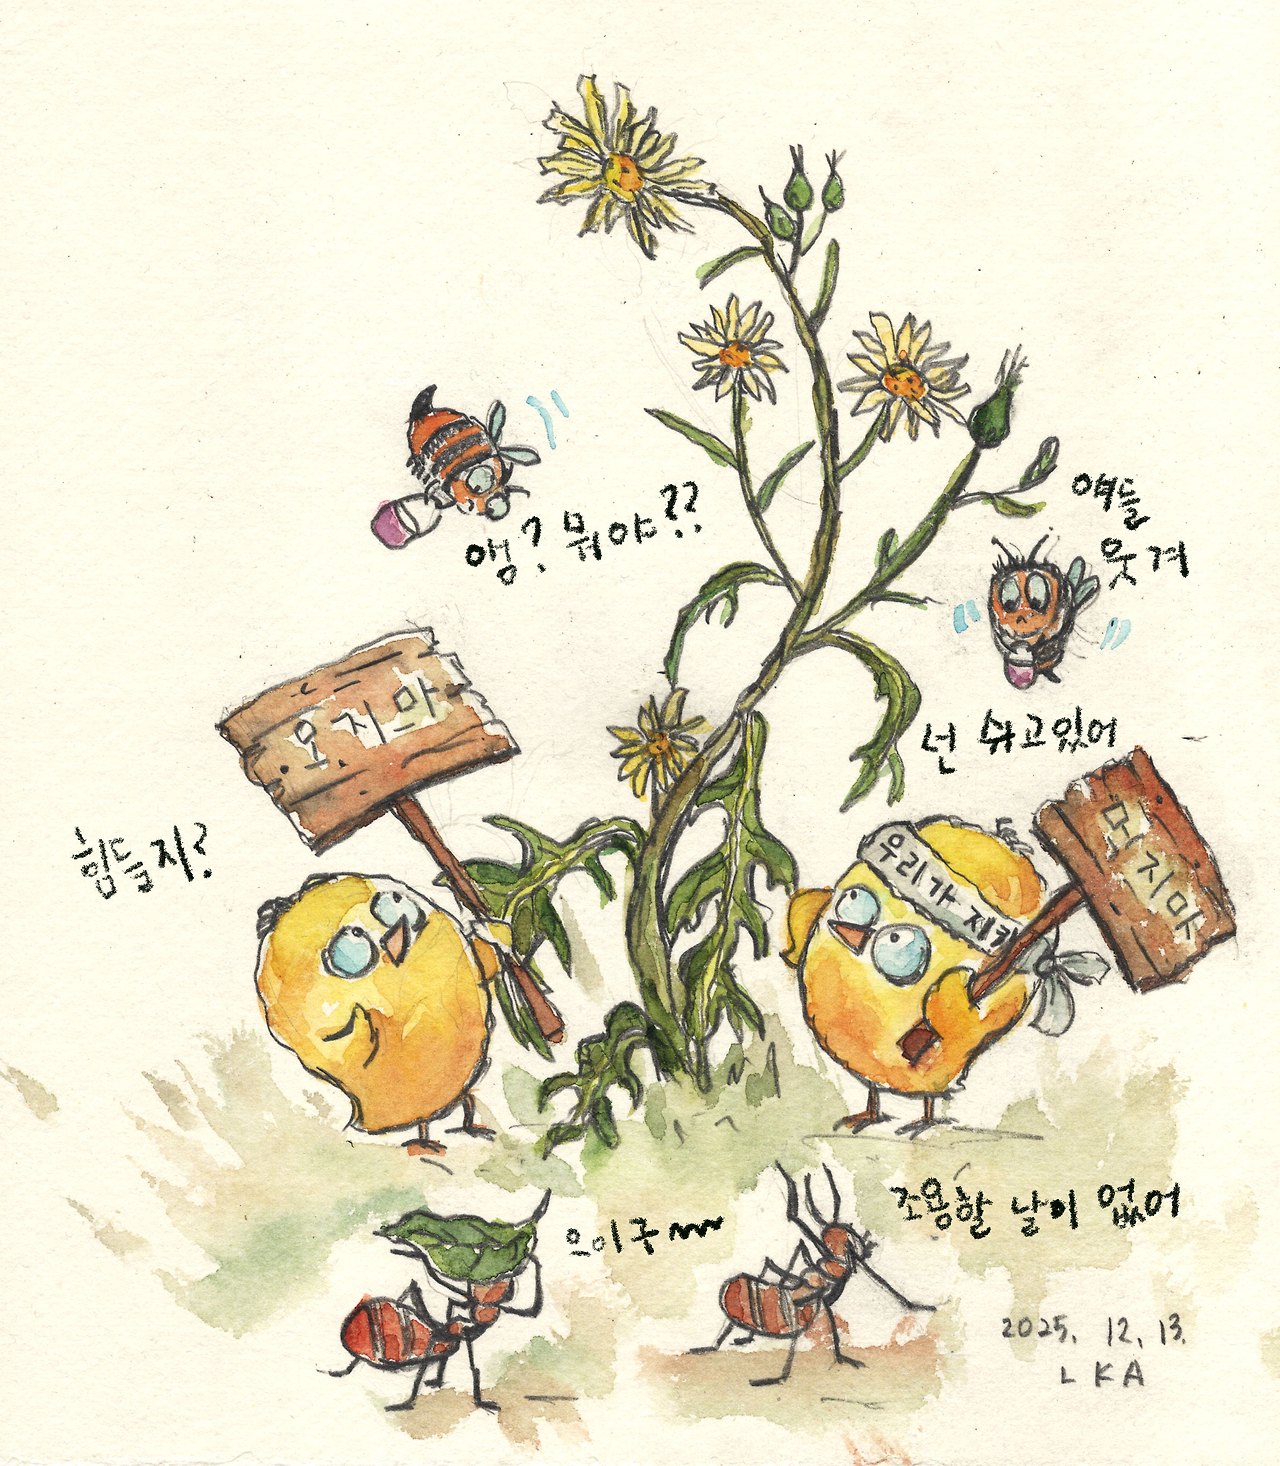 앵? 뭐야??
얘들
웃겨
오지마
넌 쉬고있어
힘들지?
우리가 지키
오지마
으이구~~
조용할 날이 없어
2025. 12. 13.
LKA